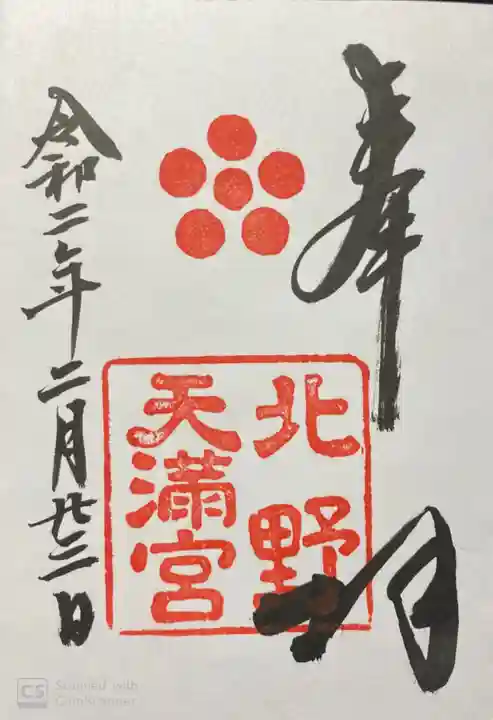 奉拝
北野
天満宮
令和二年二月廿三日
CS Scanned with
CamScanner